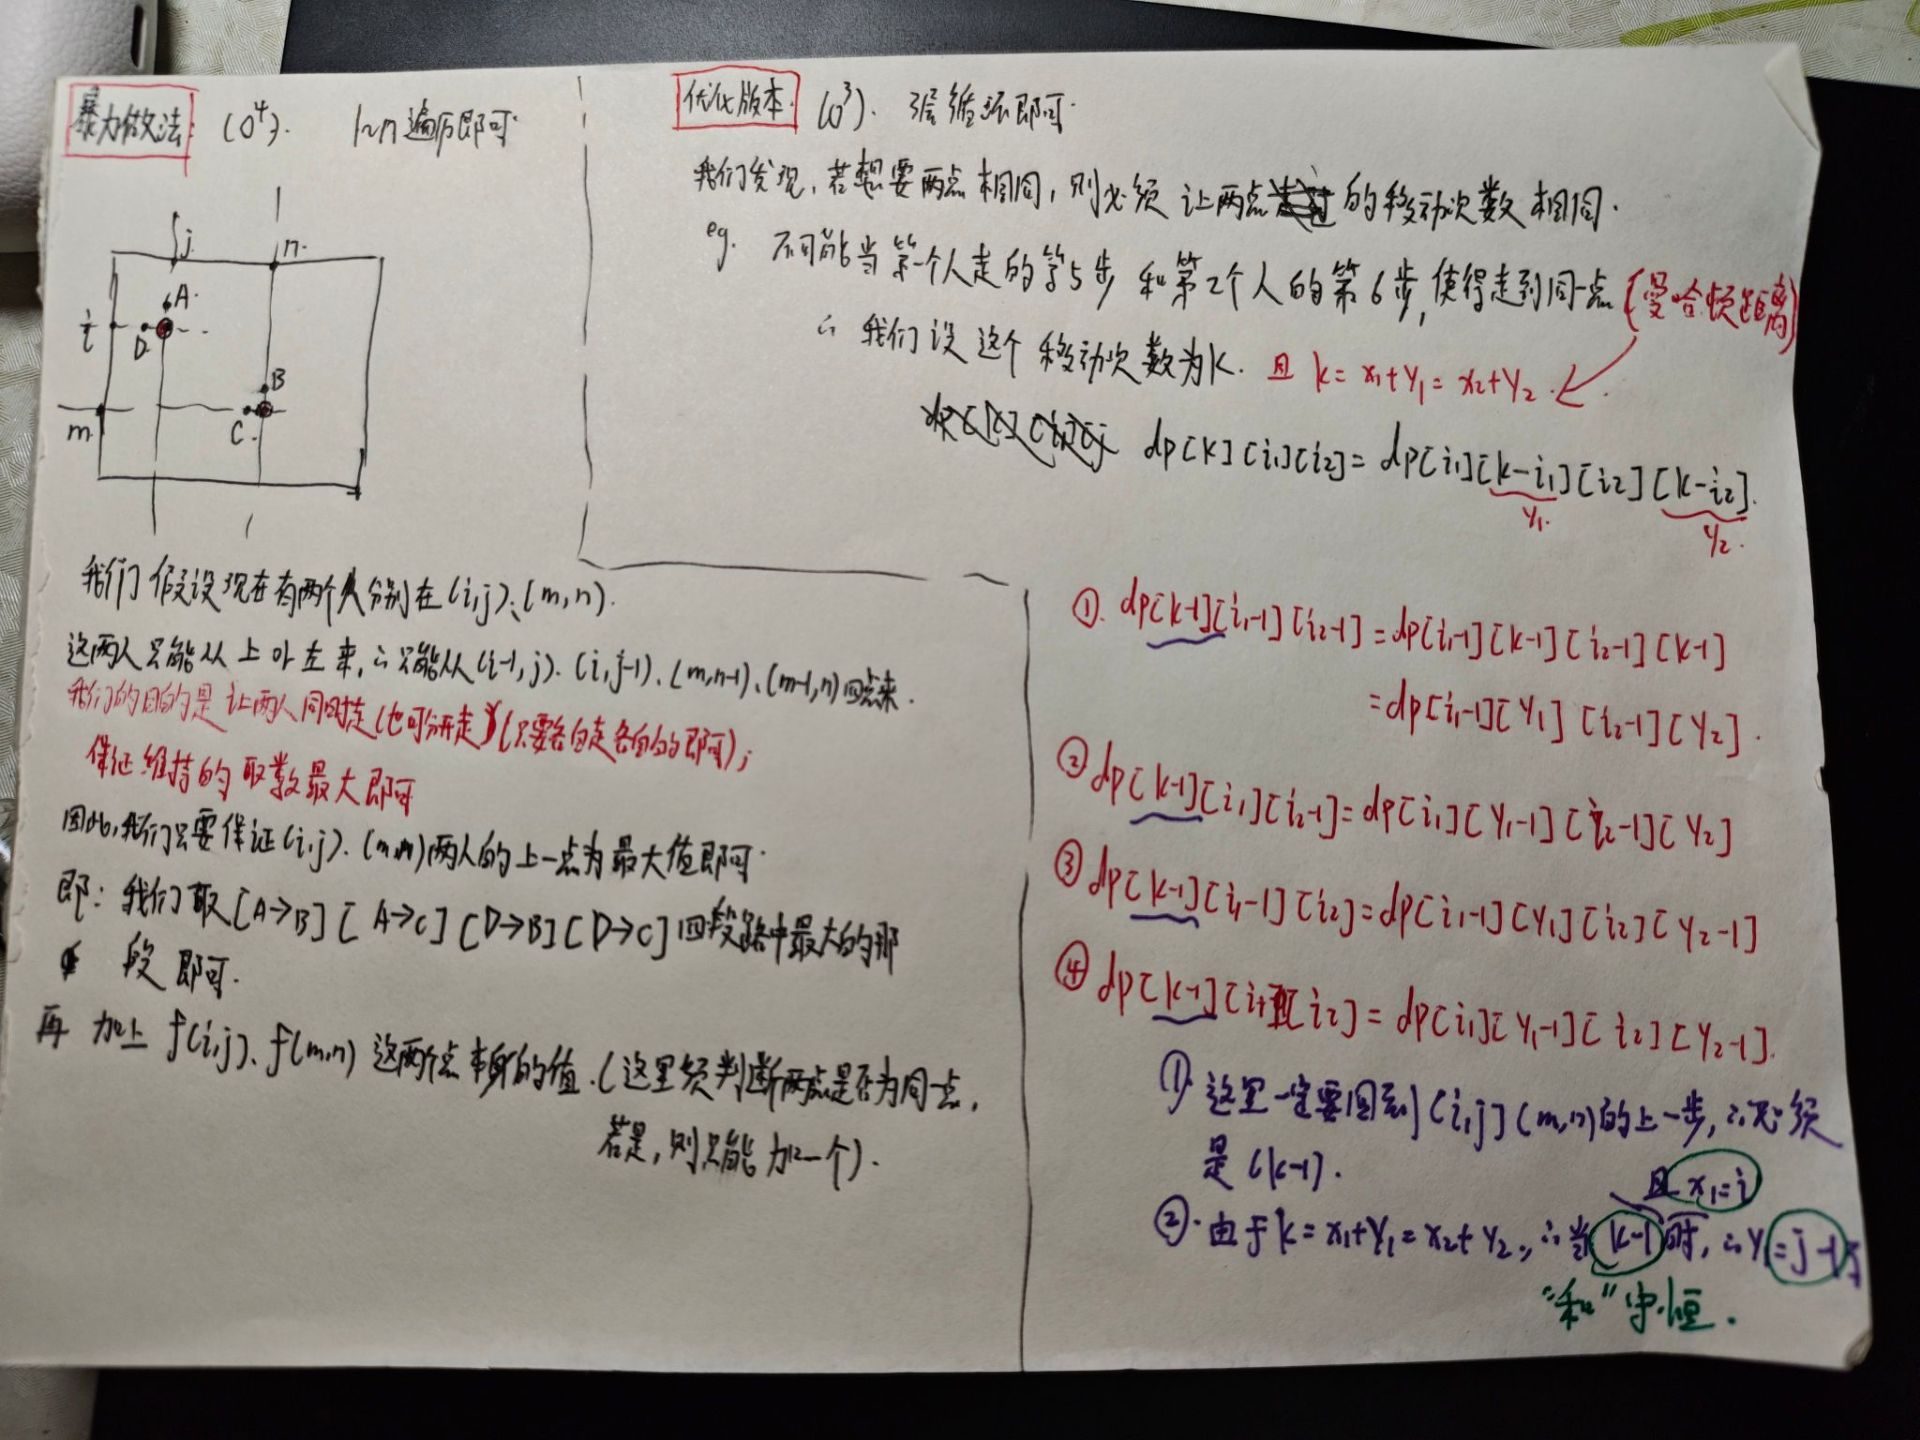 暴力做法: (O⁴). 1~n遍历即可.
j n.
A.
i D
B
m C.
我们假设现在有两个人分别在(i,j)、(m,n).
这两人只能从上 or 左来,∴只能从(i-1,j).(i,j-1)、(m,n-1)、(m-1,n)四点来.
我们的目的是让两人同时走(也可分开走)(只要各自走各自的即可);
保证维持的取数最大即可
因此,我们只要保证(i,j).(m,n)两人的上一点为最大值即可.
即: 我们取[A→B][A→C][D→B][D→C]四段路中最大的那
段即可.
再加上f(i,j)、f(m,n)这两个点本身的值.(这里须判断两点是否为同一点,
若是,则只能加一个).
优化版本. (O³). 3层循环即可.
我们发现,若想要两点相同,则必须让两点的移动次数相同.
eg. 不可能当第一个人走的第5步和第2个人的第6步,使得走到同一点(曼哈顿距离)
∴我们设这个移动次数为k. 且 k=x₁+y₁=x₂+y₂.
dp[k][i₁][i₂]=dp[i₁][k-i₁][i₂][k-i₂].
y₁. y₂.
①. dp[k-1][i₁-1][i₂-1]=dp[i₁-1][k-1][i₂-1][k-1]
=dp[i₁-1][y₁][i₂-1][y₂].
② dp[k-1][i₁][i₂-1]=dp[i₁][y₁-1][i₂-1][y₂]
③ dp[k-1][i₁-1][i₂]=dp[i₁-1][y₁][i₂][y₂-1]
④ dp[k-1][i₁][i₂]=dp[i₁][y₁-1][i₂][y₂-1].
①. 这里一定要回到(i,j](m,n)的上一步,∴必须
是(k-1).
且x₁=i
②. 由于k=x₁+y₁=x₂+y₂,∴当k-1时,∴y₁=j-1
"和"守恒.